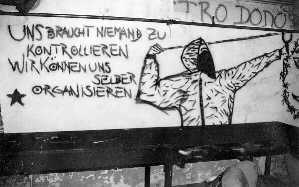 TRO DODO
UNS BRAUCHT NIEMAND ZU
KONTROLLIEREN
WIR KÖNNEN UNS
SELBER
ORGANISIEREN